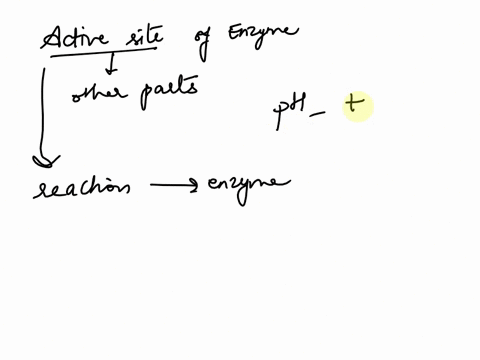 Active site of Enzyme
other parts
pH – t
reaction → enzyme